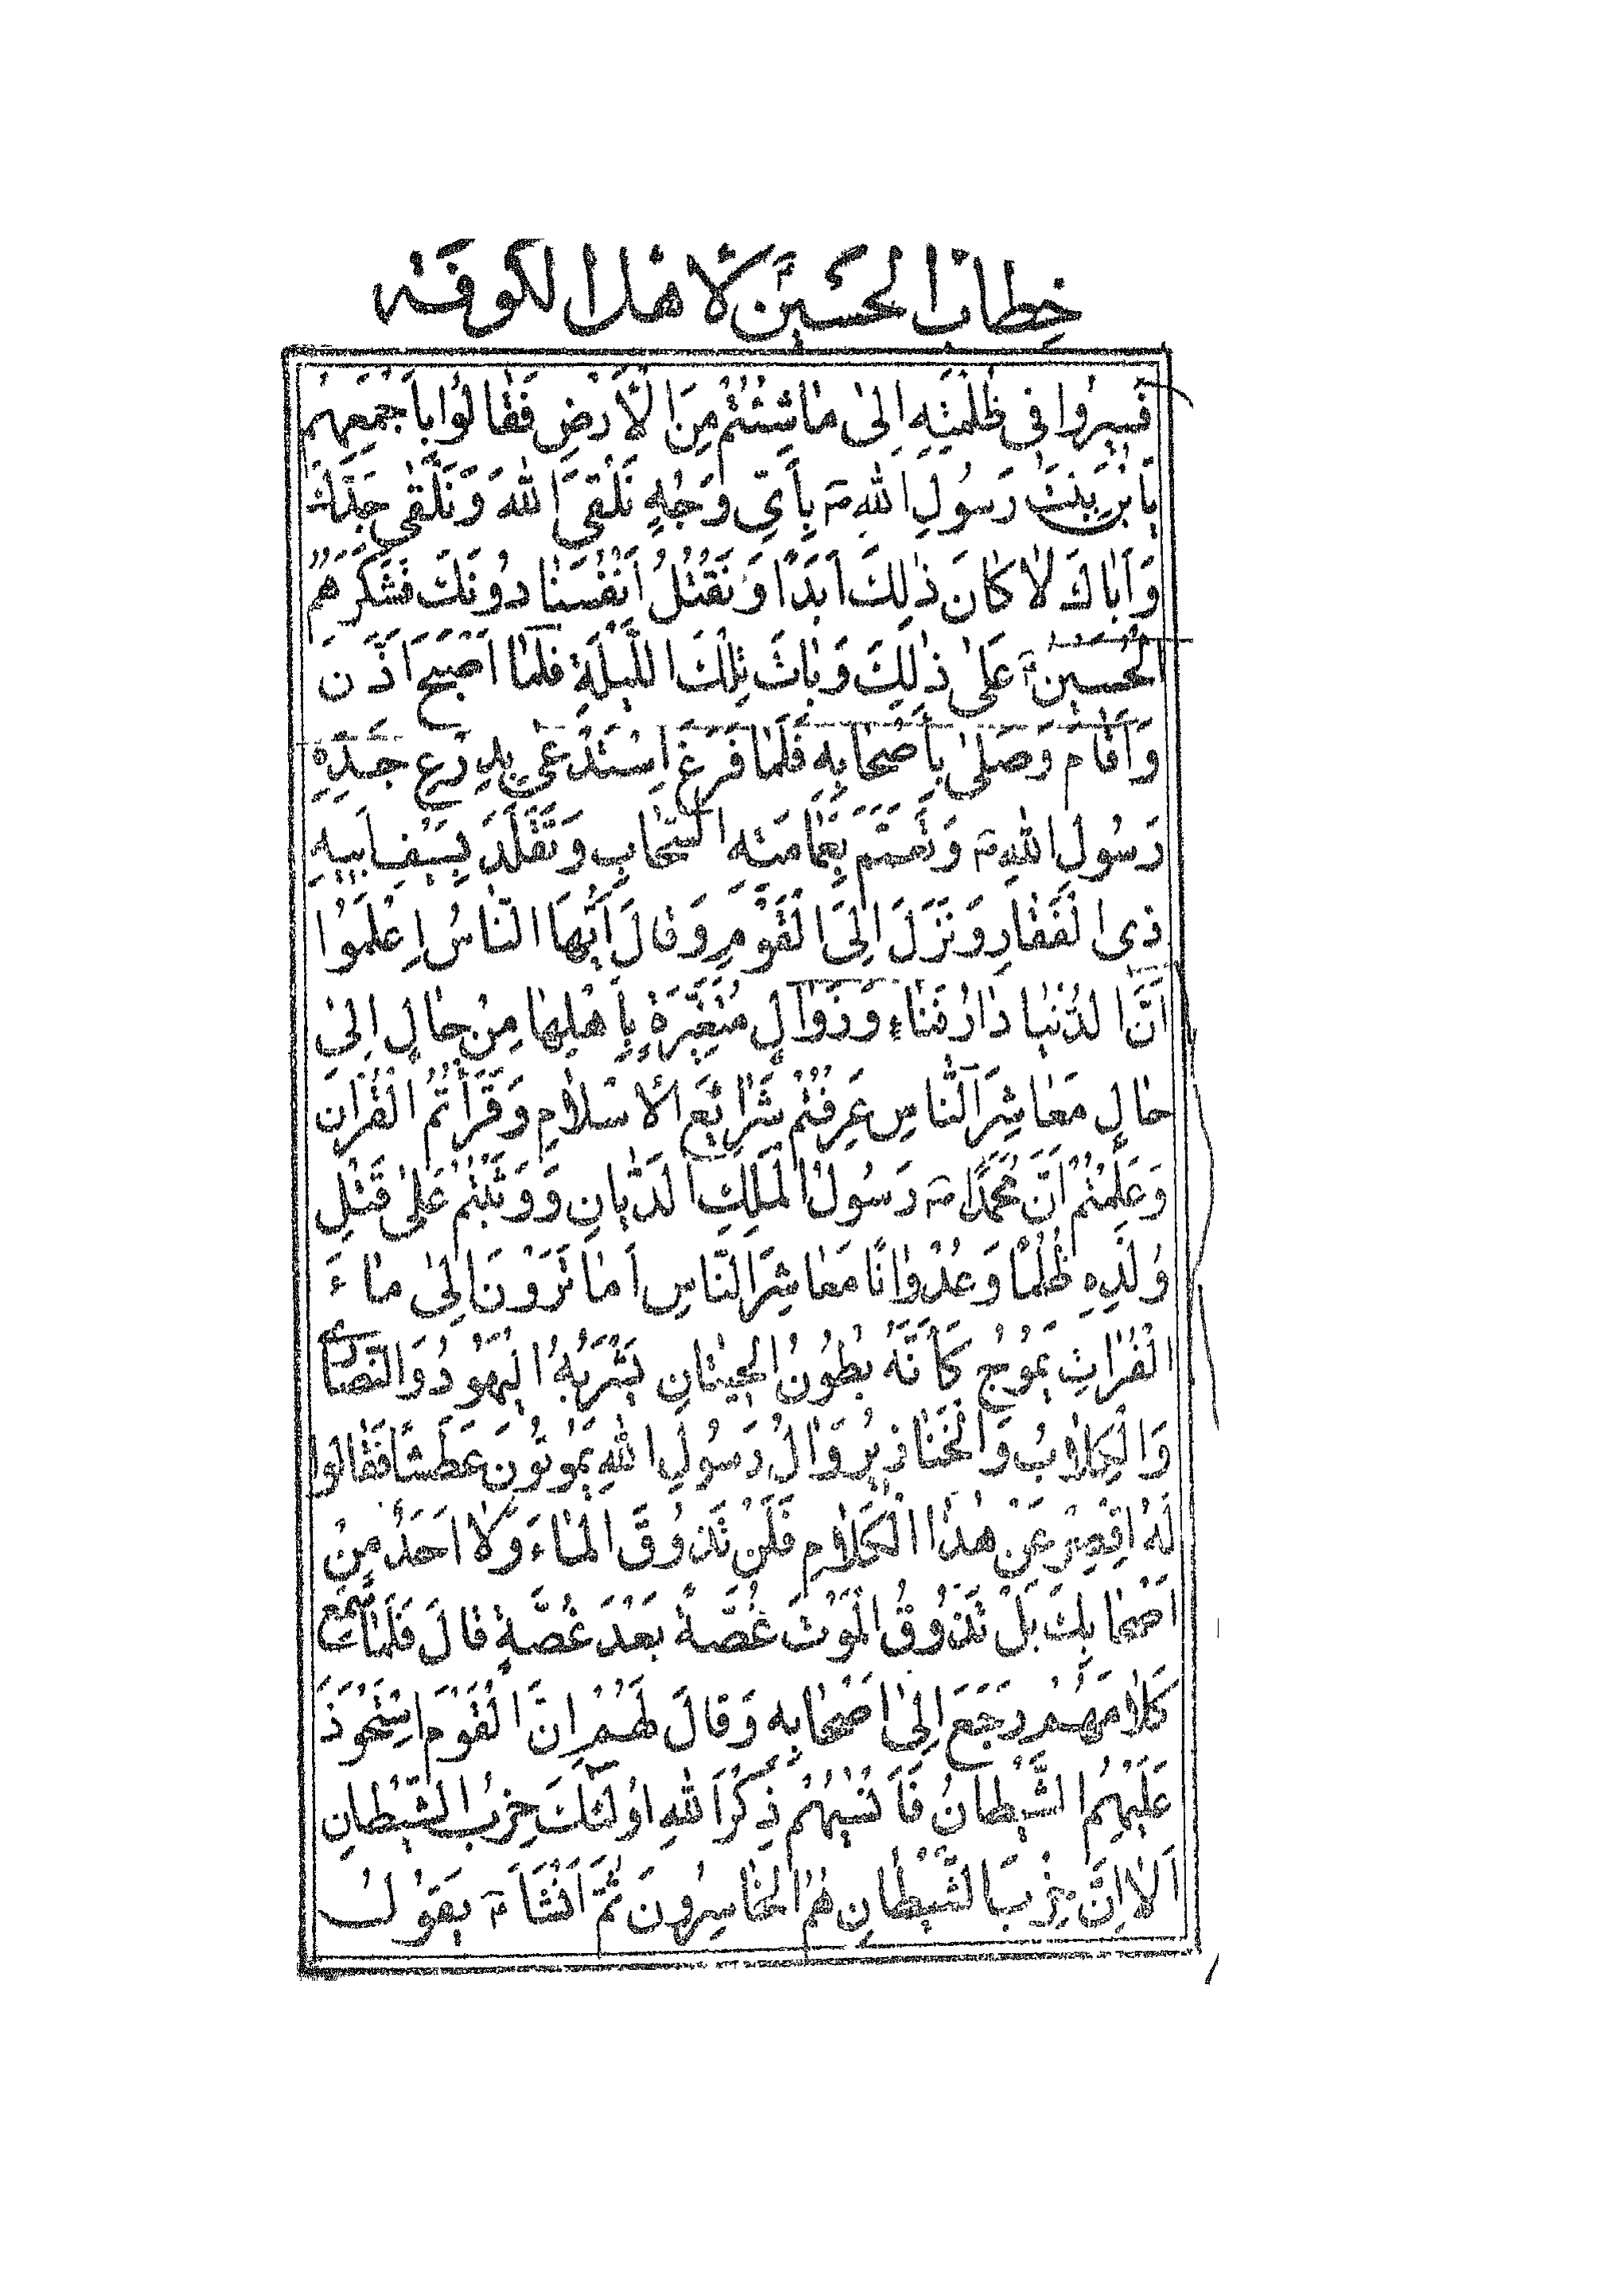 خِطابُ الحُسَيْنِ لِأَهْلِ الْكُوفَةِ
فَسِيرُوا فِى ظُلْمَتِهِ اِلىٰ مٰا شِئْتُمْ مِنَ الْأَرْضِ فَقٰالُوا بِاَجْمَعِهِمْ
يَابْنَ بِنْتِ رَسُولِ اللهِ ص بِاَىِّ وَجْهٍ نَلْقَى اللهَ وَنَلْقٰى جَدَّكَ
وَاَبٰاكَ لاٰ كٰانَ ذٰلِكَ اَبَدًا وَنَقْتُلُ اَنْفُسَنٰا دُونَكَ فَشَكَرَهُمُ
الْحُسَيْنُ ع عَلىٰ ذٰلِكَ وَبٰاتَ تِلْكَ اللَّيْلَةِ فَلَمّٰا اَصْبَحَ اَذَّنَ
وَاَقٰامَ وَصَلّىٰ بِاَصْحٰابِهِ فَلَمّٰا فَرَغَ اِسْتَدْعىٰ بِدِرْعِ جَدِّهِ
رَسُولِ اللهِ ص وَتَعَمَّمَ بِعَمٰامَتِهِ السَّحٰابِ وَتَقَلَّدَ بِسَيْفِ اَبِيهِ
ذِى الْفَقٰارِ وَنَزَلَ اِلَى الْقَوْمِ وَقٰالَ اَيُّهَا النّٰاسُ اِعْلَمُوا
اَنَّ الدُّنْيٰا دٰارُ فَنٰاءٍ وَزَوٰالٍ مُتَغَيِّرَةٍ بِاَهْلِهٰا مِنْ حٰالٍ اِلىٰ
حٰالٍ مَعٰاشِرَ النّٰاسِ عَرِفْتُمْ شَرٰايِعَ الْاِسْلاٰمِ وَقَرَأْتُمُ الْقُرْاٰنَ
وَعَلِمْتُمْ اَنَّ مُحَمَّدًا ص رَسُولُ الْمَلِكِ الدَّيّٰانِ وَوَثَبْتُمْ عَلىٰ قَتْلِ
وُلْدِهِ ظُلْمًا وَعُدْوٰانًا مَعٰاشِرَ النّٰاسِ اَمٰا تَرَوْنَ اِلىٰ مٰاءَ
الْفُرٰاتِ يَمُوجُ كَاَنَّهُ بُطُونُ الْحِيتٰانِ يَشْرَبُهُ الْيَهُودُ وَالنَّصٰارىٰ
وَالْكِلاٰبُ وَالْخَنٰازِيرُ وَاٰلُ رَسُولِ اللهِ يَمُوتُونَ عَطَشًا فَقٰالُوا
لَهُ اِقْصِرْ عَنْ هٰذَا الْكَلاٰمِ فَلَنْ تَذُوقَ الْمٰاءَ وَلاٰ اَحَدٌ مِنْ
اَصْحٰابِكَ بَلْ تَذُوقُ الْمَوْتَ غُصَّةً بَعْدَ غُصَّةٍ قٰالَ فَلَمّٰا سَمِعَ
كَلاٰمَهُمْ رَجَعَ اِلىٰ اَصْحٰابِهِ وَقٰالَ لَهُمْ اِنَّ الْقَوْمَ اسْتَحْوَذَ
عَلَيْهِمُ الشَّيْطٰانُ فَاَنْسٰيهُمْ ذِكْرَ اللهِ اُولٰئِكَ حِزْبُ الشَّيْطٰانِ
اَلاٰ اِنَّ حِزْبَ الشَّيْطٰانِ هُمُ الْخٰاسِرُونَ ثُمَّ اَنْشَاَ ع يَقُولُ